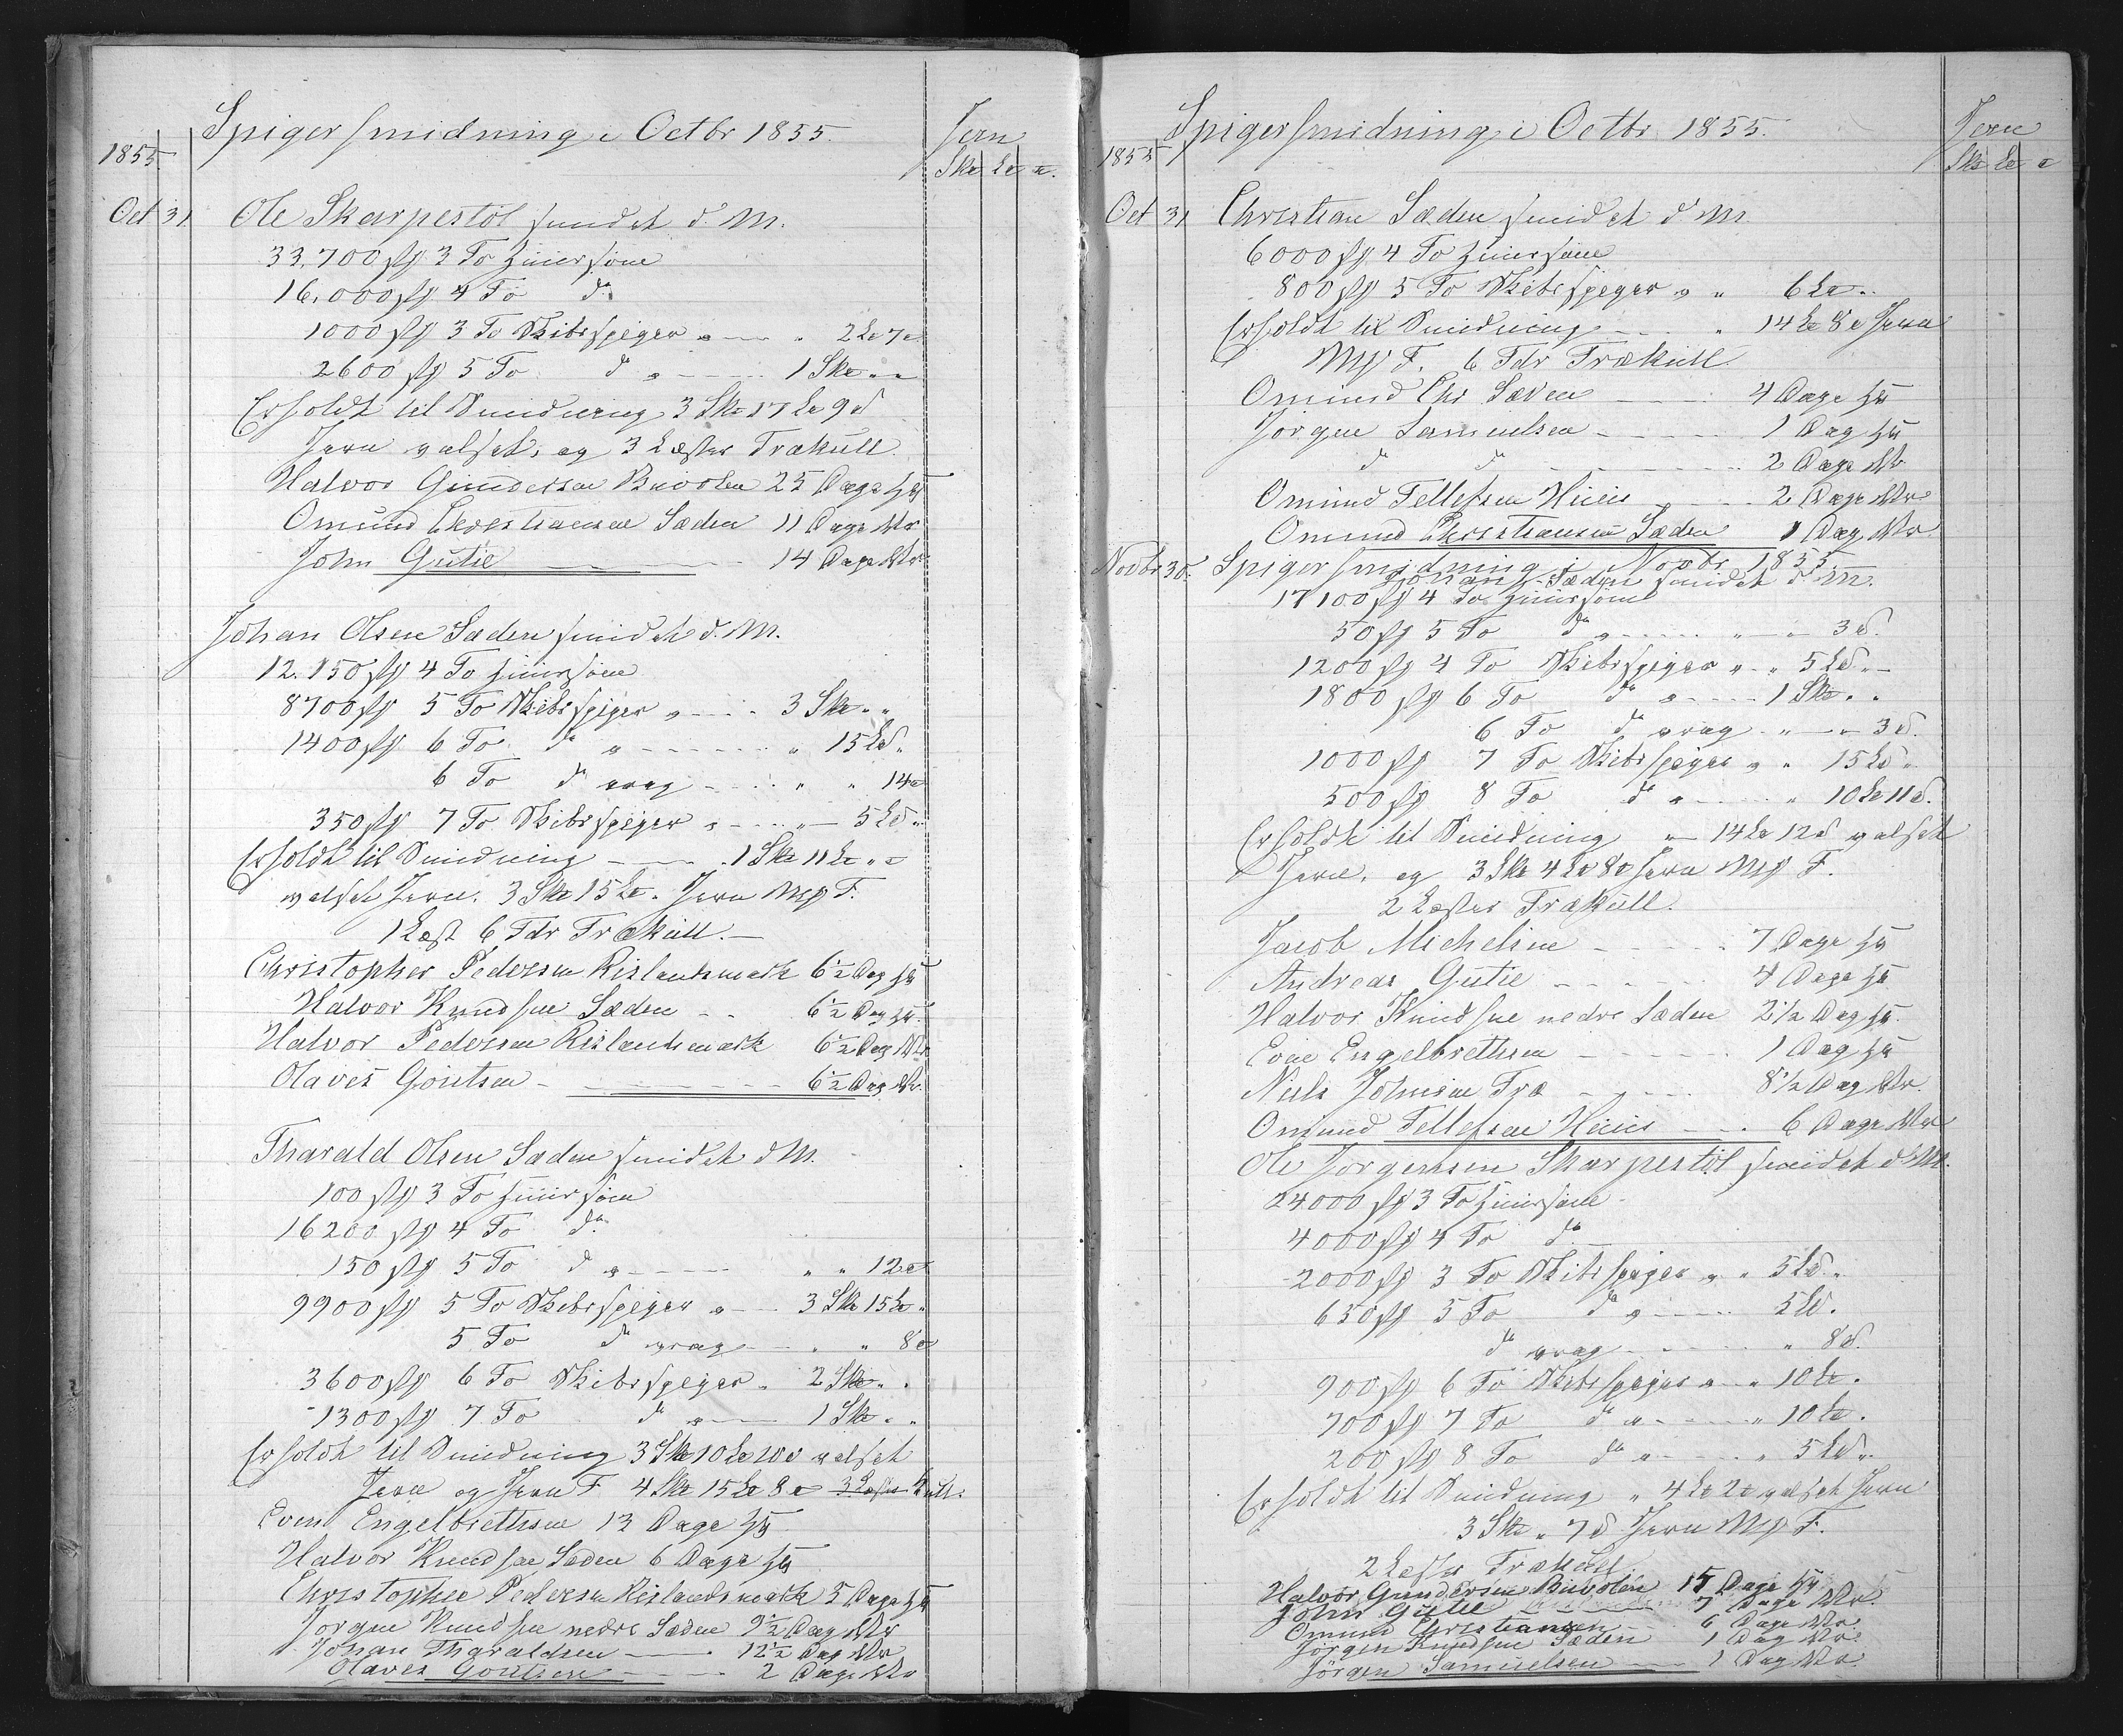 Spigersmidning i Octbr 1855.
Jern
1855
Sk℔ L℔ ℔.
Oct 31. Ole Skarpestöl smidet d. M.
33,700 stk 3 To
16,000 stk 4 To do
1000 stk 3 To Skibsspiger " — " 2 L℔ 7 ℔
2600 stk 5 To do " — 1 Sk℔ " "
Erholdt til Smidning 3 Sk℔ 17 L℔ 9 ℔
Jern valset, og 3 Læster Trækull
Halvor Gundersen 25 Dage
Omund Christiansen Sæden 11 Dage
John Gutie — 14 Dage
Johan Olsen Sæden smidet d. M.
12.150 stk 4 To
8700 stk 5 To Skibsspiger " — 3 Sk℔ " "
1400 stk 6 To do " — " 15 L℔ "
6 To do vrag — " " 14 ℔
350 stk 7 To Skibsspiger " — " 5 L℔ "
Erholdt til Smidning — 1 Sk℔ 11 L℔ " ℔
valset Jern. 3 Sk℔ 15 L℔ " Jern F.
1 Læst 6 Tdr Trækull. —
Christopher Pedersen Rislandsmark 6½ Dag
Halvor Knudsen Sæden — 6½ Dag
Halvor Pedersen Rislandsmark 6½ Dag
Olaves Goutsen — 6½ Dag
Tharald Olsen Sæden smidet d M.
100 stk 3 To
16200 stk 4 To do
150 stk 5 To do " — " " 12 ℔
9900 stk 5 To Skibsspiger " — 3 Sk℔ 15 L℔ "
5 To do vrag — " " 8 ℔
3600 stk 6 To Skibsspiger " 2 Sk℔ " "
1300 stk 7 To do " — 1 Sk℔ " "
Erholdt til Smidning 3 Sk℔ 10 L℔ 10 ℔ valset
Jern og Jern F 4 Sk℔ 15 L℔ 8 ℔ 3 Læster Kull.
Even Engelbrethsen 13 Dage
Halvor Knudsen Sæden 6 Dage
Christopher Pedersen Rislandsmark 5 Dage
Jørgen Knudsen nedre Sæden 9½ Dag
Johan Tharaldsen — 12½ Dag
Olaves Goutsen — 2 Dage
Spigersmidning i Octbr 1855.
Jern
1855
Sk℔ L℔ ℔
Oct 31 Christian Sæden smidet d M.
6000 stk 4 To
800 stk 5 To Skibsspiger " " 6 L℔ "
Erholdt til Smidning — " 14 L℔ 8 ℔ Jern
F. 6 Tdr Trækull
Omund Chr Sæden — 4 Dage
Jörgen Samuelsen — 1 Dag
do do — 2 Dage
Omund Tellefsen — 2 Dage
Omund Christiansen Sæden 1 Dag
Novbr 30. Spigersmidning i Novbr 1855.
Johan Sæden smidet d M.
17100 stk 4 To
50 stk 5 To do " — " — 3 ℔.
1200 stk 4 To Skibsspiger " " 5 L℔ "
1800 stk 6 To do " — 1 Sk℔ " "
6 To do vrag " — " 3 ℔.
1000 stk 7 To Skibsspiger " " 15 L℔ "
500 stk 8 To do " — " 10 L℔ 11 ℔.
Erholdt til Smidning " — 14 L℔ 12 ℔ valset
Jern, og 3 Sk℔ 4 L℔ 8 ℔ Jern F.
2 Læster Trækull.
Jacob Michelsen — 7 Dage
Andreas Gutie — 4 Dage
Halvor Knudsen nedre Sæden 2½ Dag
Even Engelbrethsen — 1 Dag
Niels Johnsen Træ — 8½ Dag
Omund Tellefsen — 6 Dage
Ole Jorgensen Skarpestöl smidet d. M.
24000 stk 3 To
4000 stk 4 To do
2000 stk 3 To Skibsspiger " " 5 L℔ "
650 stk 5 To do " — 5 L℔.
do vrag — " 8 ℔.
900 stk 6 To Skibsspiger " " 10 L℔.
700 stk 7 To do " — " 10 L℔.
200 stk 8 To do " — " 5 L℔ "
Erholdt til Smidning " 4 L℔ 2 ℔ valset Jern
3 Sk℔ " 7 ℔ Jern F.
2 Læster Trækull.
Halvor Gundersen 15 Dage
John Gutie — 7 Dage
Omund Christiansen — 6 Dage
Jörgen Knudsen Sæden 1 Dag
Jörgen Samuelsen — 1 Dag